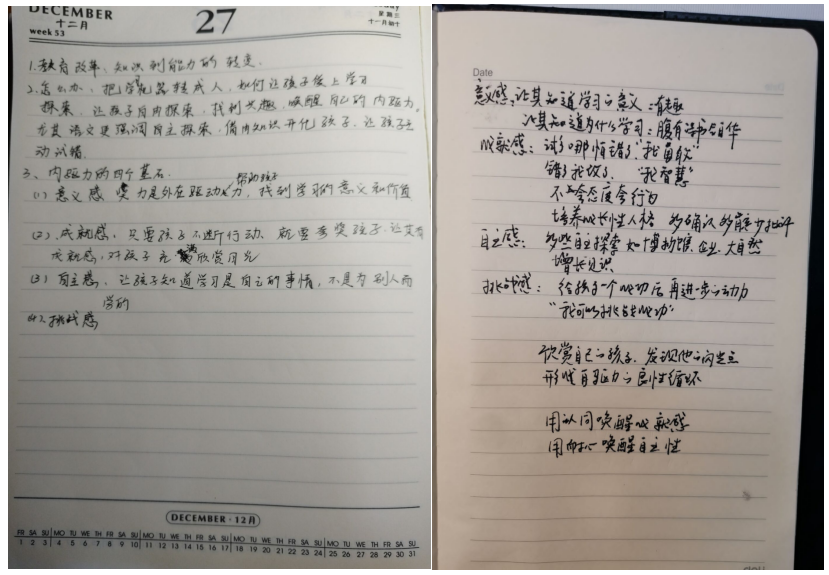 DECEMBER
十二月
week 53
27
星期三
十一月初十
1.教育改革、知识到能力的转变.
2.怎么办、把学习机器转成人,如何让孩子像上学习
探索、让孩子自由探索、找到兴趣,唤醒自己的内驱力.
尤其语文更强调自主探索、借由知识开化孩子、让孩子主
动试错.
3、内驱力的四个基石.
帮助孩子
(1)意义感 动力是外在驱动力,找到学习的意义和价值
(2)、成就感,只要孩子不断行动、就要夸奖孩子.让其有
成就感,对孩子充满欣赏目光
(3)自主感、让孩子知道学习是自己的事情,不是为别人而
学的
(4)、挑战感
DECEMBER · 12月
FR SA SU MO TU WE TH FR SA SU MO TU WE TH FR SA SU MO TU WE TH FR SA SU MO TU WE TH FR SA SU
1 2 3 4 5 6 7 8 9 10 11 12 13 14 15 16 17 18 19 20 21 22 23 24 25 26 27 28 29 30 31
Date
意义感:让其知道学习的意义:有趣
让其知道为什么学习:腹有诗书气自华
成就感:试了哪怕错了"我勇敢"
错了我改了、"我智慧"
不夸态度夸行为
培养成长性人格 多确认多肯定少批评
自主感:多些自主探索 如博物馆、企业、大自然
增长见识
挑战感:给孩子一个成功后再进一步的动力
"我可以挑战成功"
欣赏自己的孩子、发现他的闪光点
形成自驱力的良性循环
用认同唤醒成就感
用耐心唤醒自主性